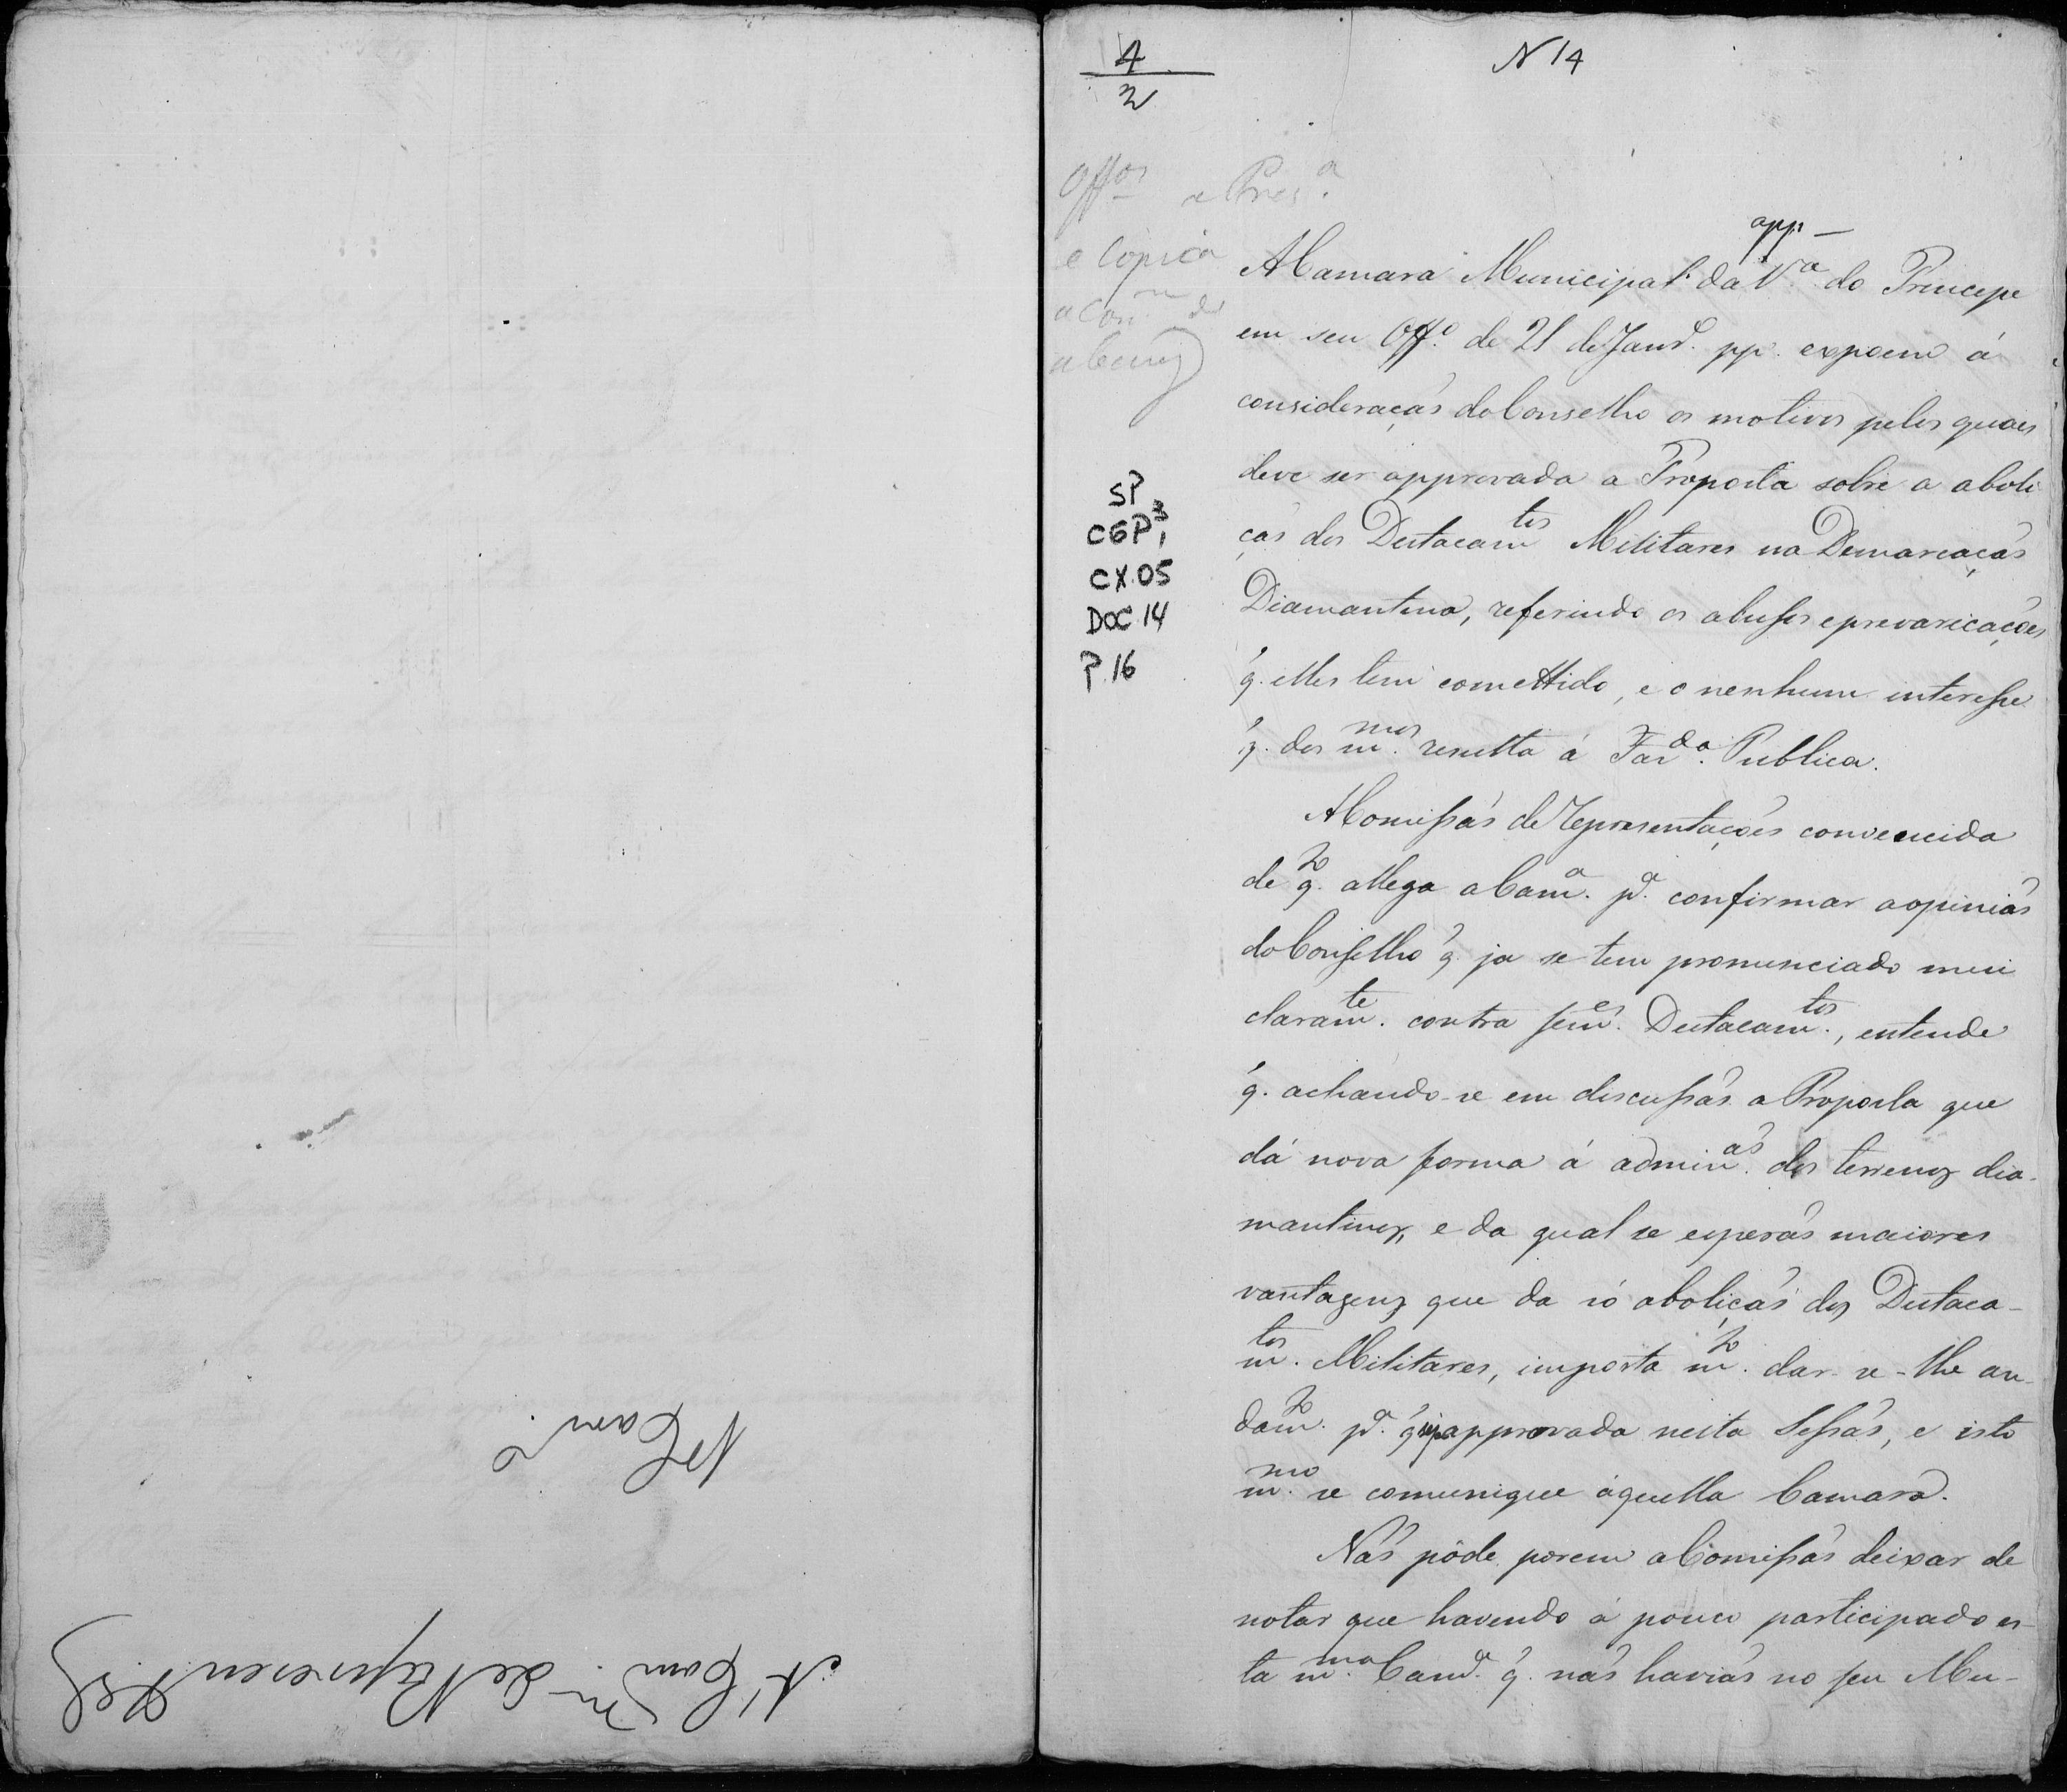 A Com.m de Represen.es
A Cam.a
4
2
N 14
Off.os a Pres.a
e Copia
app.
A Camara Municipal da V.a do Principe
em seu Off.o de 21 de Janr.o pp. expoem á
consideraçaõ do Conselho os motivos pelos quaes
deve ser approvada a Proposta sobre a aboli
çaõ dos Destacam.tos Militares na Demarcaçaõ
Diamantina, referindo os abusos e prevaricações
q. elles tem comettido, e o nenhum interesse
q. dos m.mos resulta á Faz.da Publica.
A Comissaõ de Representações convencida
do q. allega a Cam.a p.a confirmar a opiniaõ
do Conselho q. ja se tem pronunciado mui
claram.te contra sem.es Destacam.tos, entende
q. achando-se em discussaõ a Proposta que
dá nova forma á admin.aõ dos terrenos dia-
mantinos, e da qual se esperaõ maiores
vantagens que da só aboliçaõ dos Destaca-
m.tos Militares, importa m.to dar-se-lhe an-
dam.to p.a q seja approvada nesta Sessaõ, e isto
m.mo se comunique áquella Camara.
Naõ póde porem a Comissaõ deixar de
notar que havendo á pouco participado es-
ta m.ma Cam.a q. naõ haviaõ no seu Mu-
SP
CGP³,
CX.05
DOC 14
P.16